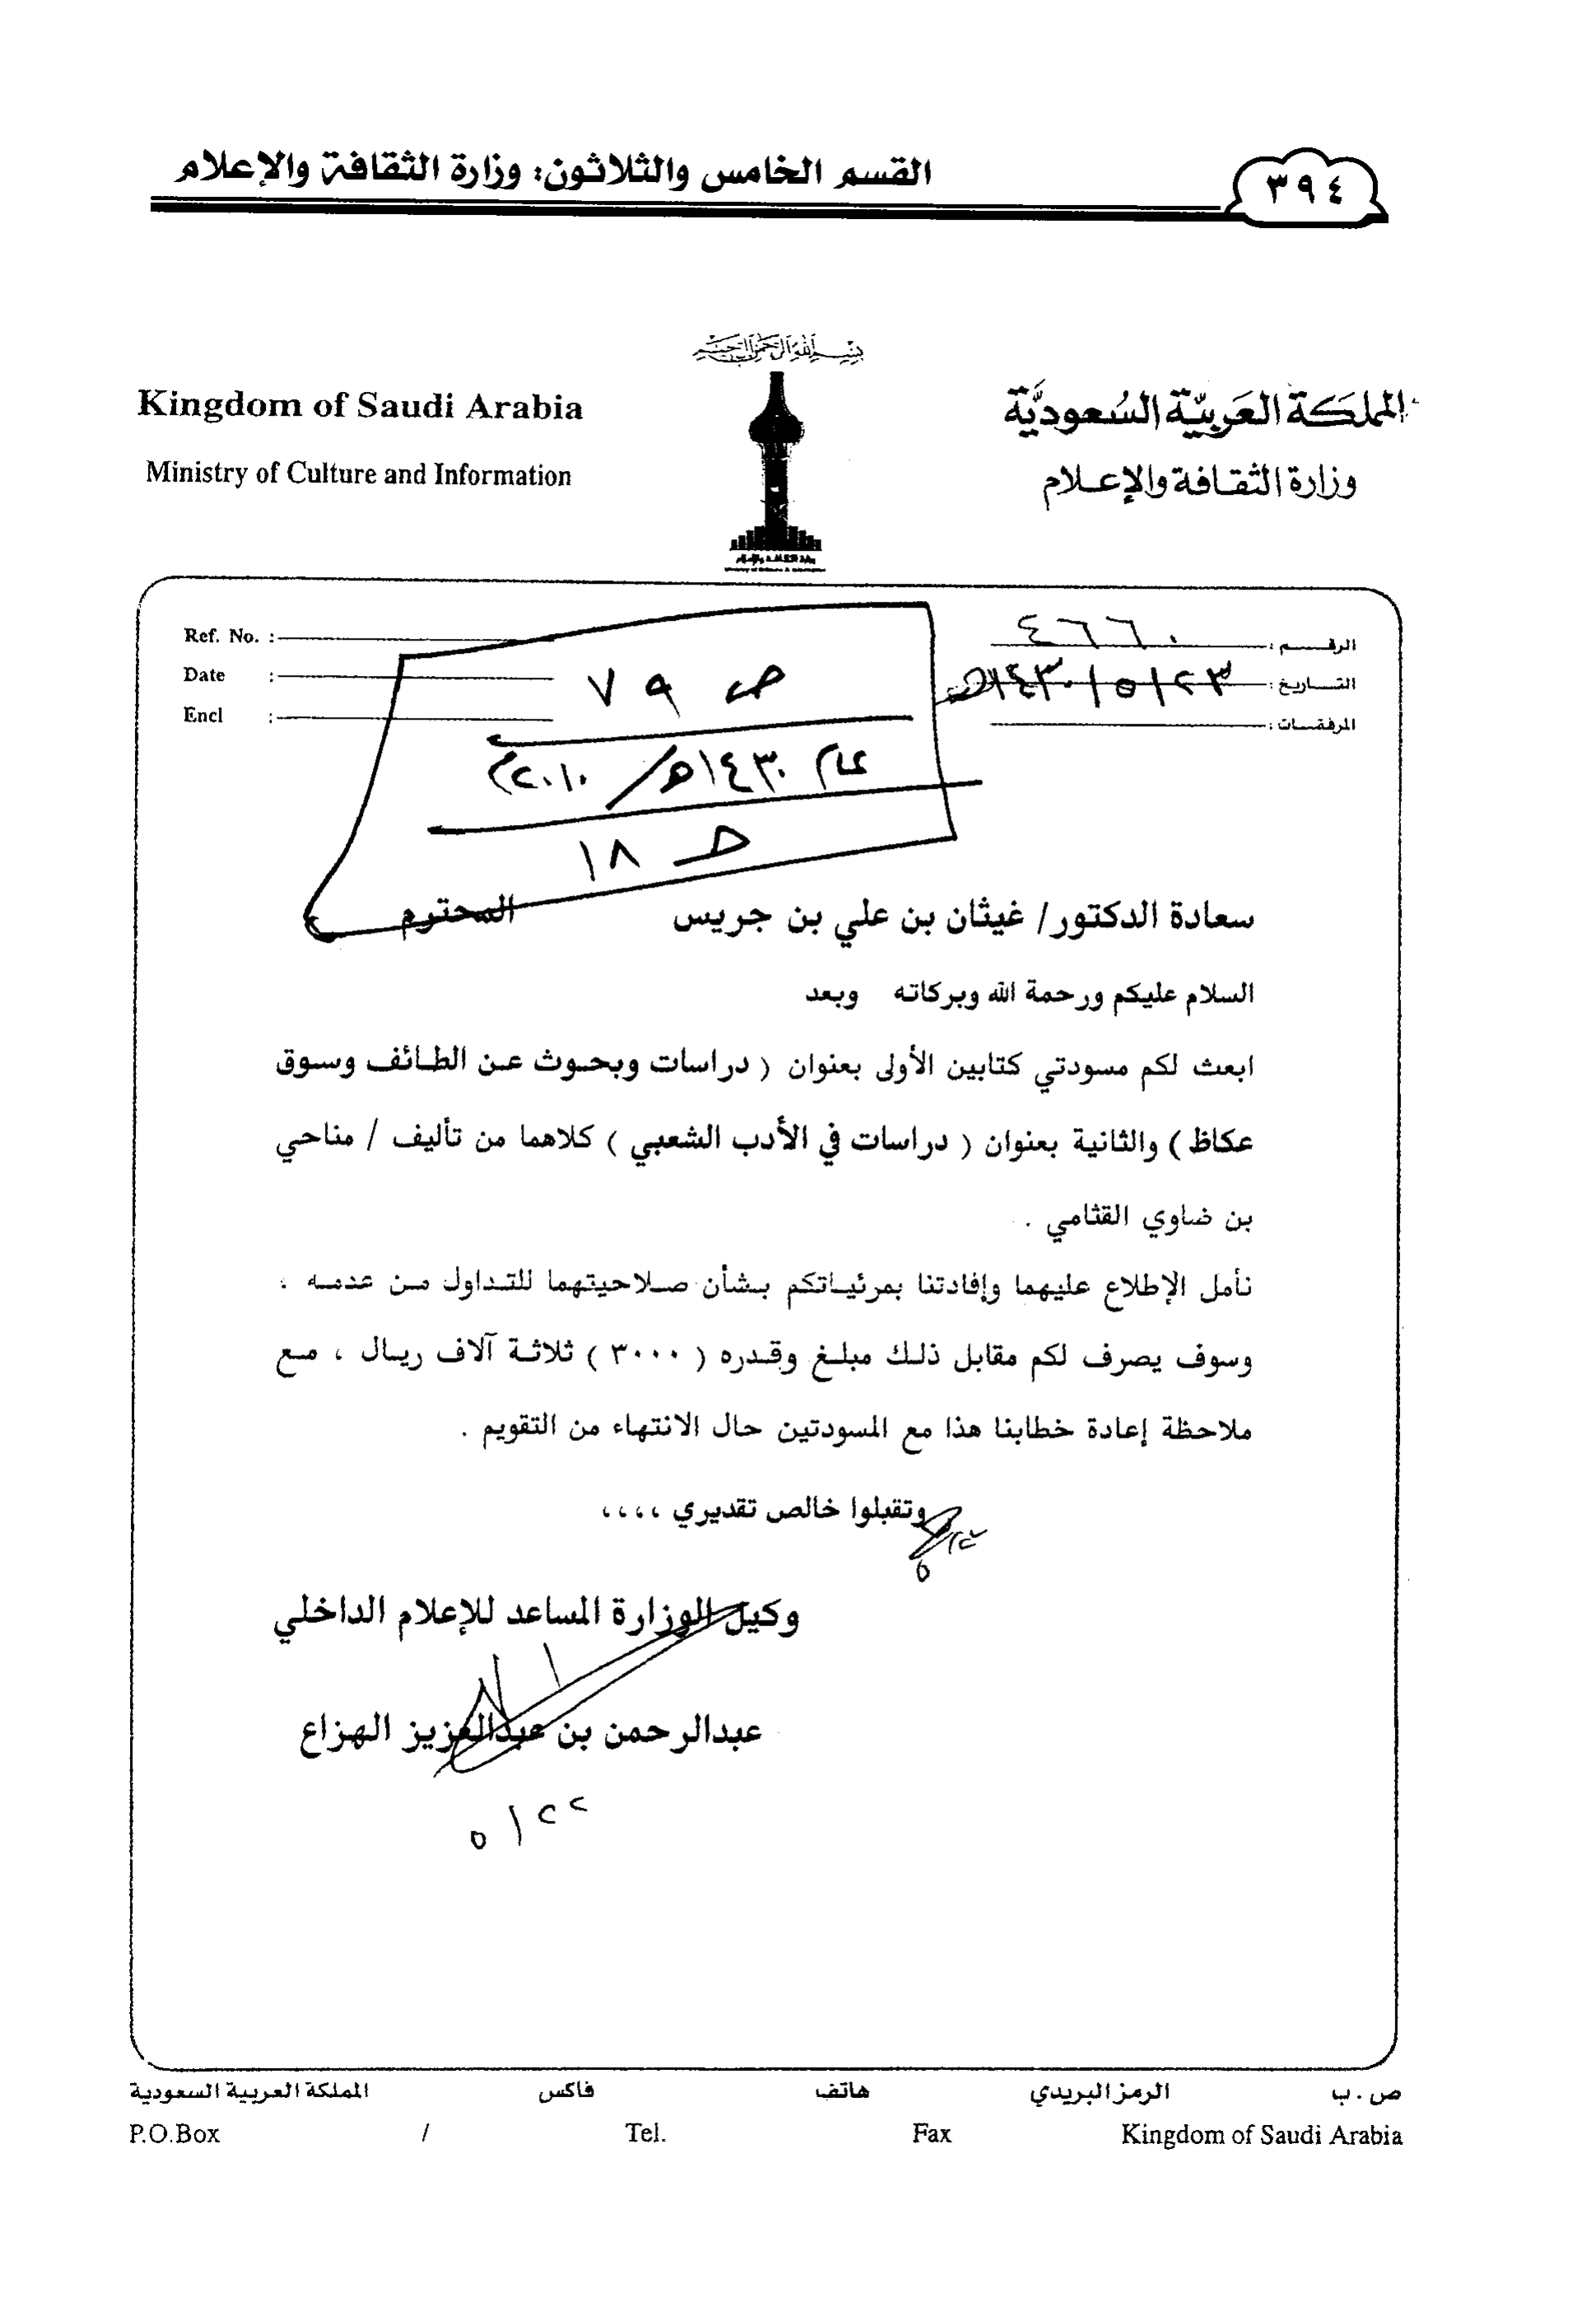 ٣٩٤
القسم الخامس والثلاثون: وزارة الثقافة والإعلام
بسم الله الرحمن الرحيم
Kingdom of Saudi Arabia
المملكة العربية السعودية
Ministry of Culture and Information
وزارة الثقافة والإعلام
الرقم : ٤٦٦٠
التاريخ : ١٤٣٠/٥/٢٣هـ
المرفقات :
Ref. No. :
Date :
Encl :
ص ٧٩
عام ١٤٣٠هـ/٢٠١٠م
١٨
سعادة الدكتور/ غيثان بن علي بن جريس المحترم
السلام عليكم ورحمة الله وبركاته وبعد
ابعث لكم مسودتي كتابين الأولى بعنوان ( دراسات وبحوث عن الطائف وسوق
عكاظ ) والثانية بعنوان ( دراسات في الأدب الشعبي ) كلاهما من تأليف / مناحي
بن ضاوي القثامي .
نأمل الإطلاع عليهما وإفادتنا بمرئياتكم بشأن صلاحيتهما للتداول من عدمه ،
وسوف يصرف لكم مقابل ذلك مبلغ وقدره ( ٣٠٠٠ ) ثلاثة آلاف ريال ، مع
ملاحظة إعادة خطابنا هذا مع المسودتين حال الانتهاء من التقويم .
وتقبلوا خالص تقديري ،،،،
وكيل الوزارة المساعد للإعلام الداخلي
عبدالرحمن بن عبدالعزيز الهزاع
٥/٢٢
ص . ب الرمز البريدي هاتف فاكس المملكة العربية السعودية
P.O.Box / Tel. Fax Kingdom of Saudi Arabia